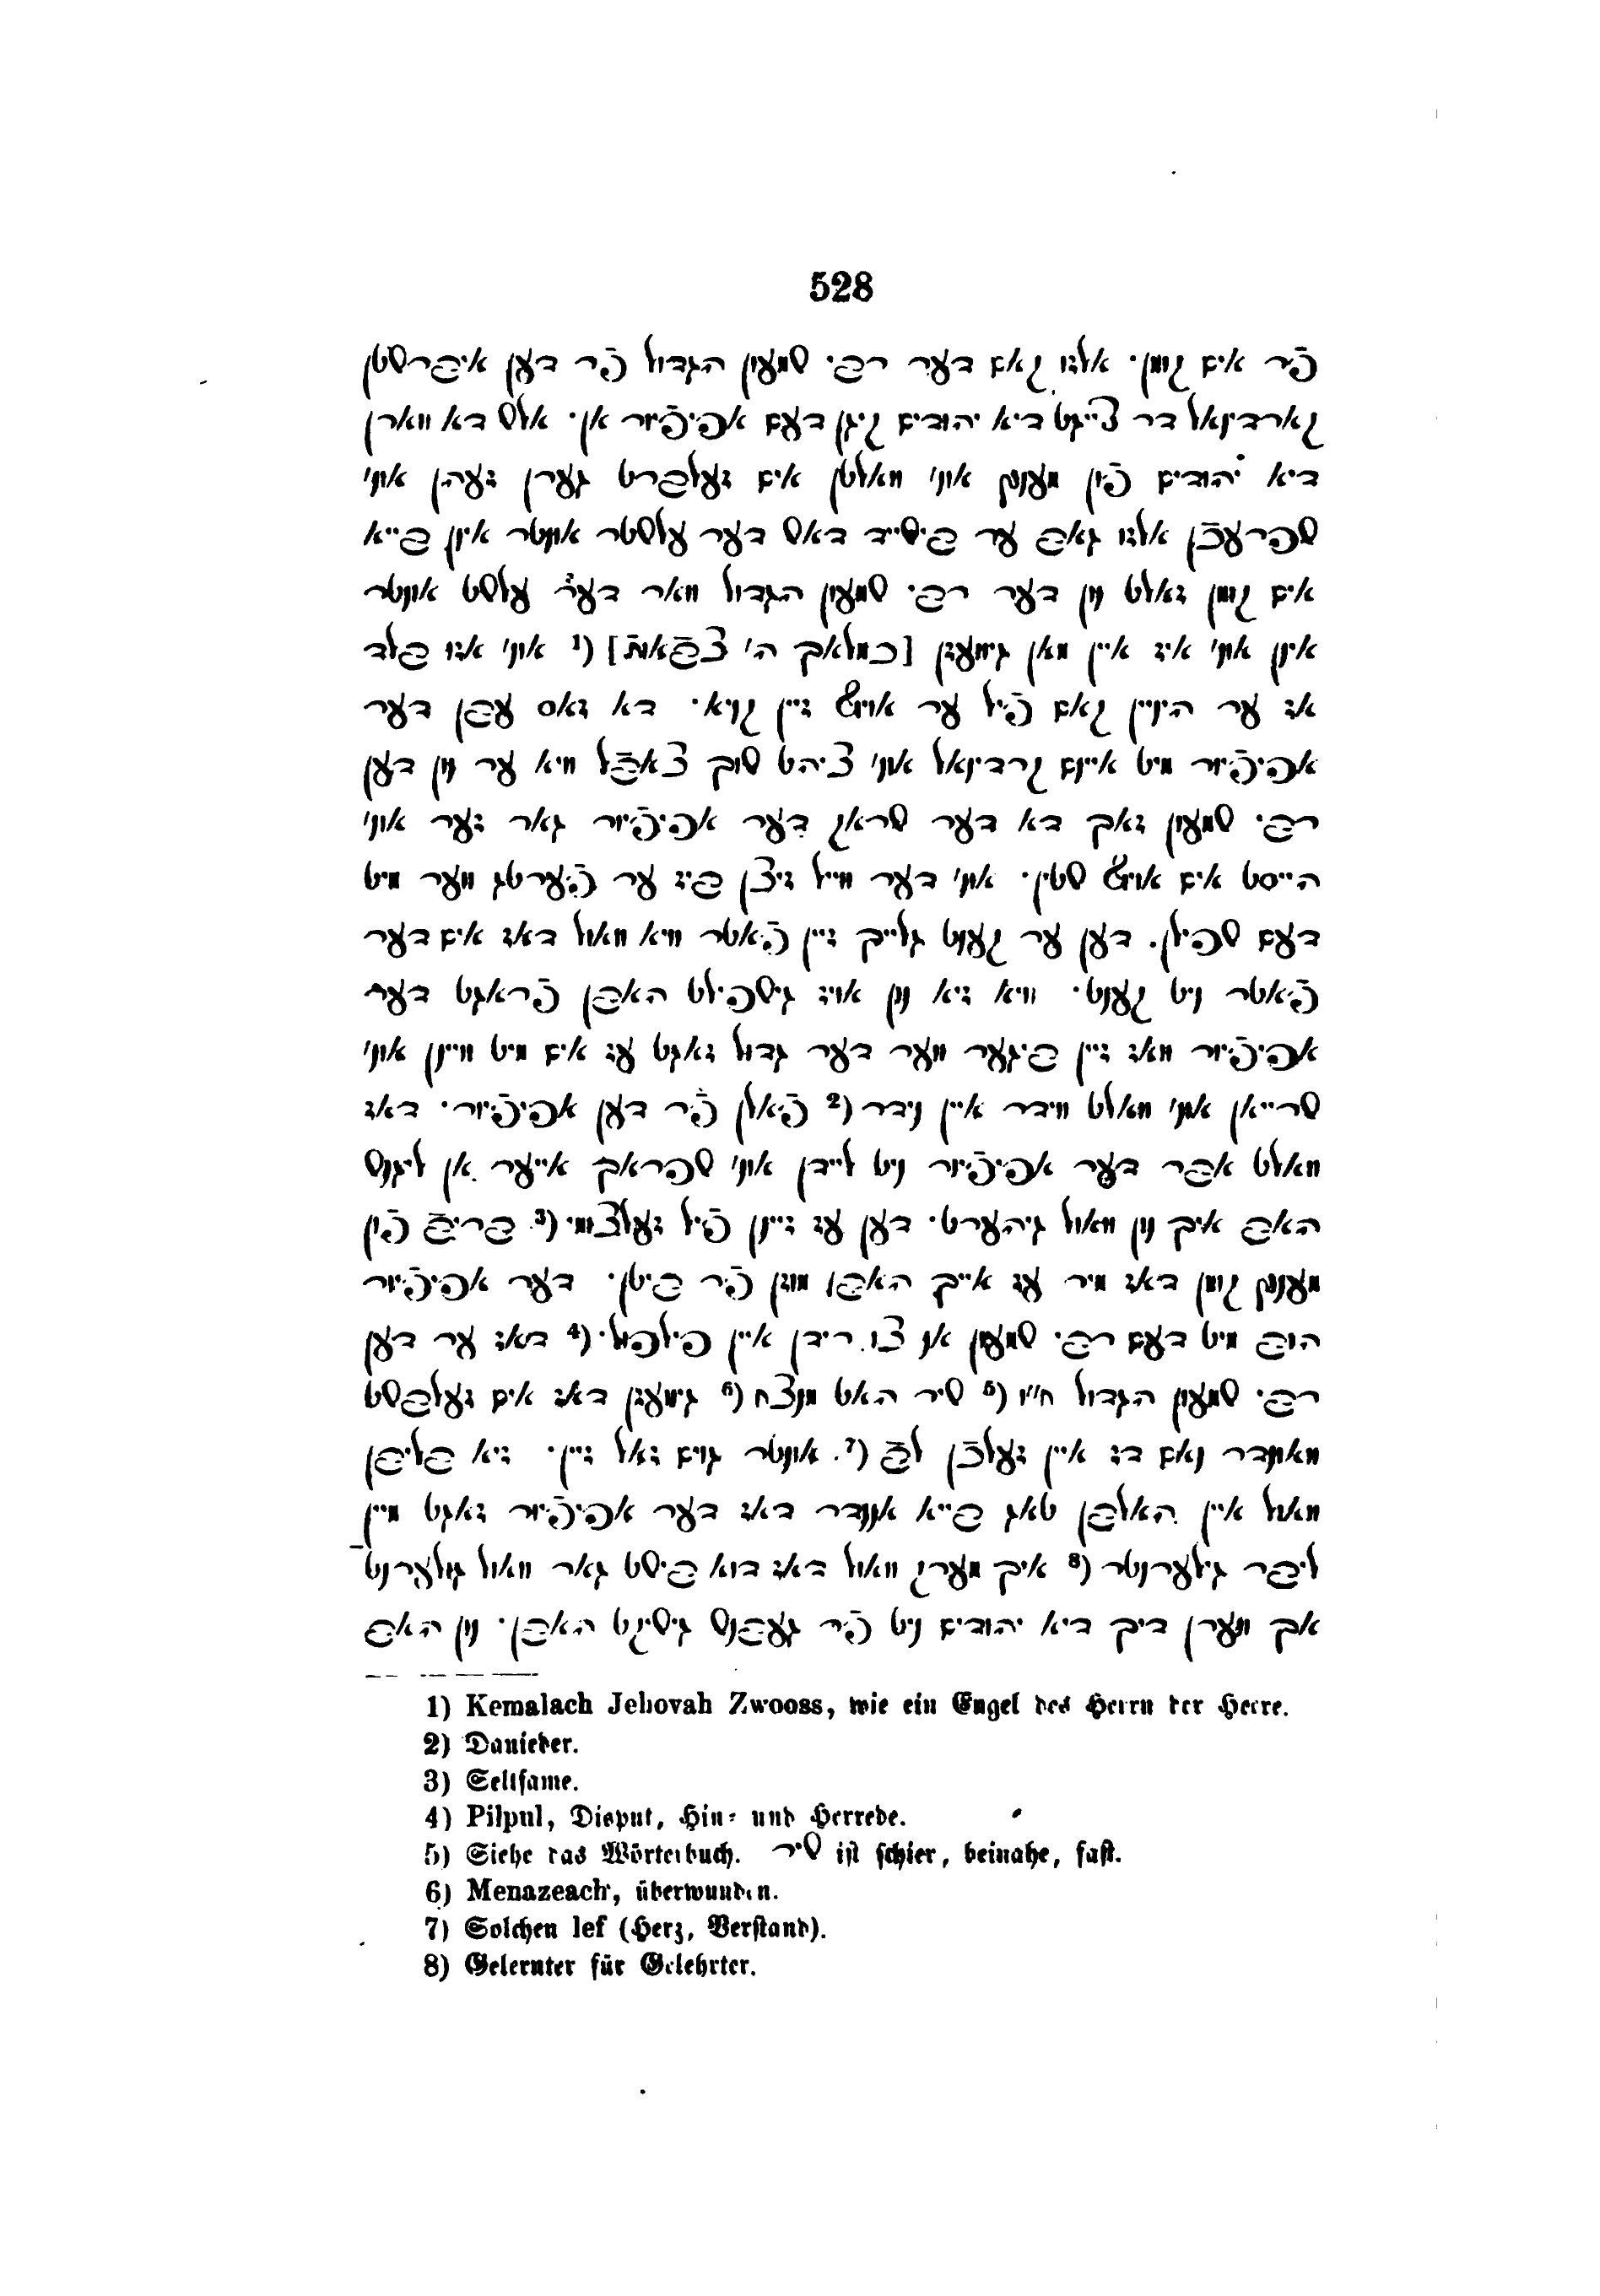 528
פֿר אים קומן· אלזו קאם דער רבי שמעון הגדול פֿר דען אײברשטן
קארדינאל דר צייגט דיא יהודים קיגן דעם אפיפֿיור אן· אלש דא ווארן
דיא יהודים פֿון מענץ אונ׳ וואלטן אים זעלברט גערן זעהן אונ׳
שפרעכֿן אלזו גאב ער בישייד דאש דער עלשטר אונטר אין בייא
אים קומן זאלט נון דער רבי שמעון הגדול וואר דער עלשט אונטר
אינן אונ׳ איז איין מאן גיוועזן [כמלאך ה׳ צבֿאות] (1 אונ׳ אזו בלד
אז ער הינײן קאם פֿיל ער אויף זיין קניא· דא זאס עבן דער
אפיפֿיור מיט איינם קרדינאל אונ׳ ציהט שוך צאבֿל וויא ער נון דען
רבי שמעון זאך דא דער שראק דער אפיפֿיור גאר זער אונ׳
הייסט אים אויף שטין· אונ׳ דער ווייל זיצן ביז ער פֿערטג ווער מיט
דעם שפילן. דען ער קענט גלייך זיין פֿאטר וויא וואול דאז אים דער
פֿאטר ניט קענט· וויא זיא נון אויז גישפילט האבן פֿראגט דער
אפיפֿיור וואז זיין ביגער ווער דער גדול זאגט עז אים מיט וויינן אונ׳
שרייאן אונ׳ וואלט ווידר איין נידר (2 פֿאלן פֿר דען אפיפֿיור· דאז
וואלט אבר דער אפיפֿיור ניט ליידן אונ׳ שפראך אייער אן ליגנש
האב איך נון וואול גיהערט· דען עז זיינן פֿיל זעלצמי (3 בריבֿ פֿון
מענץ קומן דאז מיר עז אייך האבן מוזן פֿר ביטן· דער אפיפֿיור
הוב מיט דעם רבי שמעון אן צו רידן איין פילפול· (4 דאז ער דען
רבי שמעון הגדול ח״ו (5 שיר האט מנצח (6 גיוועזן דאז אים זעלבשט
וואונדר נאם דז איין זעלכֿן לבֿ (7. אונטר גוים זאל זיין· זיא בליבן
וואול איין האלבן טאג בייא אננדר דאז דער אפיפֿיור זאגט מיין
ליבר גילערנטר (8 איך מערק וואול דאז דוא ביסט גאר וואול גילערנט
אך ווערן דיך דיא יהודים ניט פֿר געבנש גישיקט האבן· נון האב
1) Kemalach Jehovah Zwooss, wie ein Engel des Herrn der Heere.
2) Danieder.
3) Seltsame.
4) Pilpul, Disput, Hin- und Herrede.
5) Siehe das Wörterbuch. שיר ist schier, beinahe, fast.
6) Menazeach, überwunden.
7) Solchen lef (Herz, Verstand).
8) Gelernter für Gelehrter.